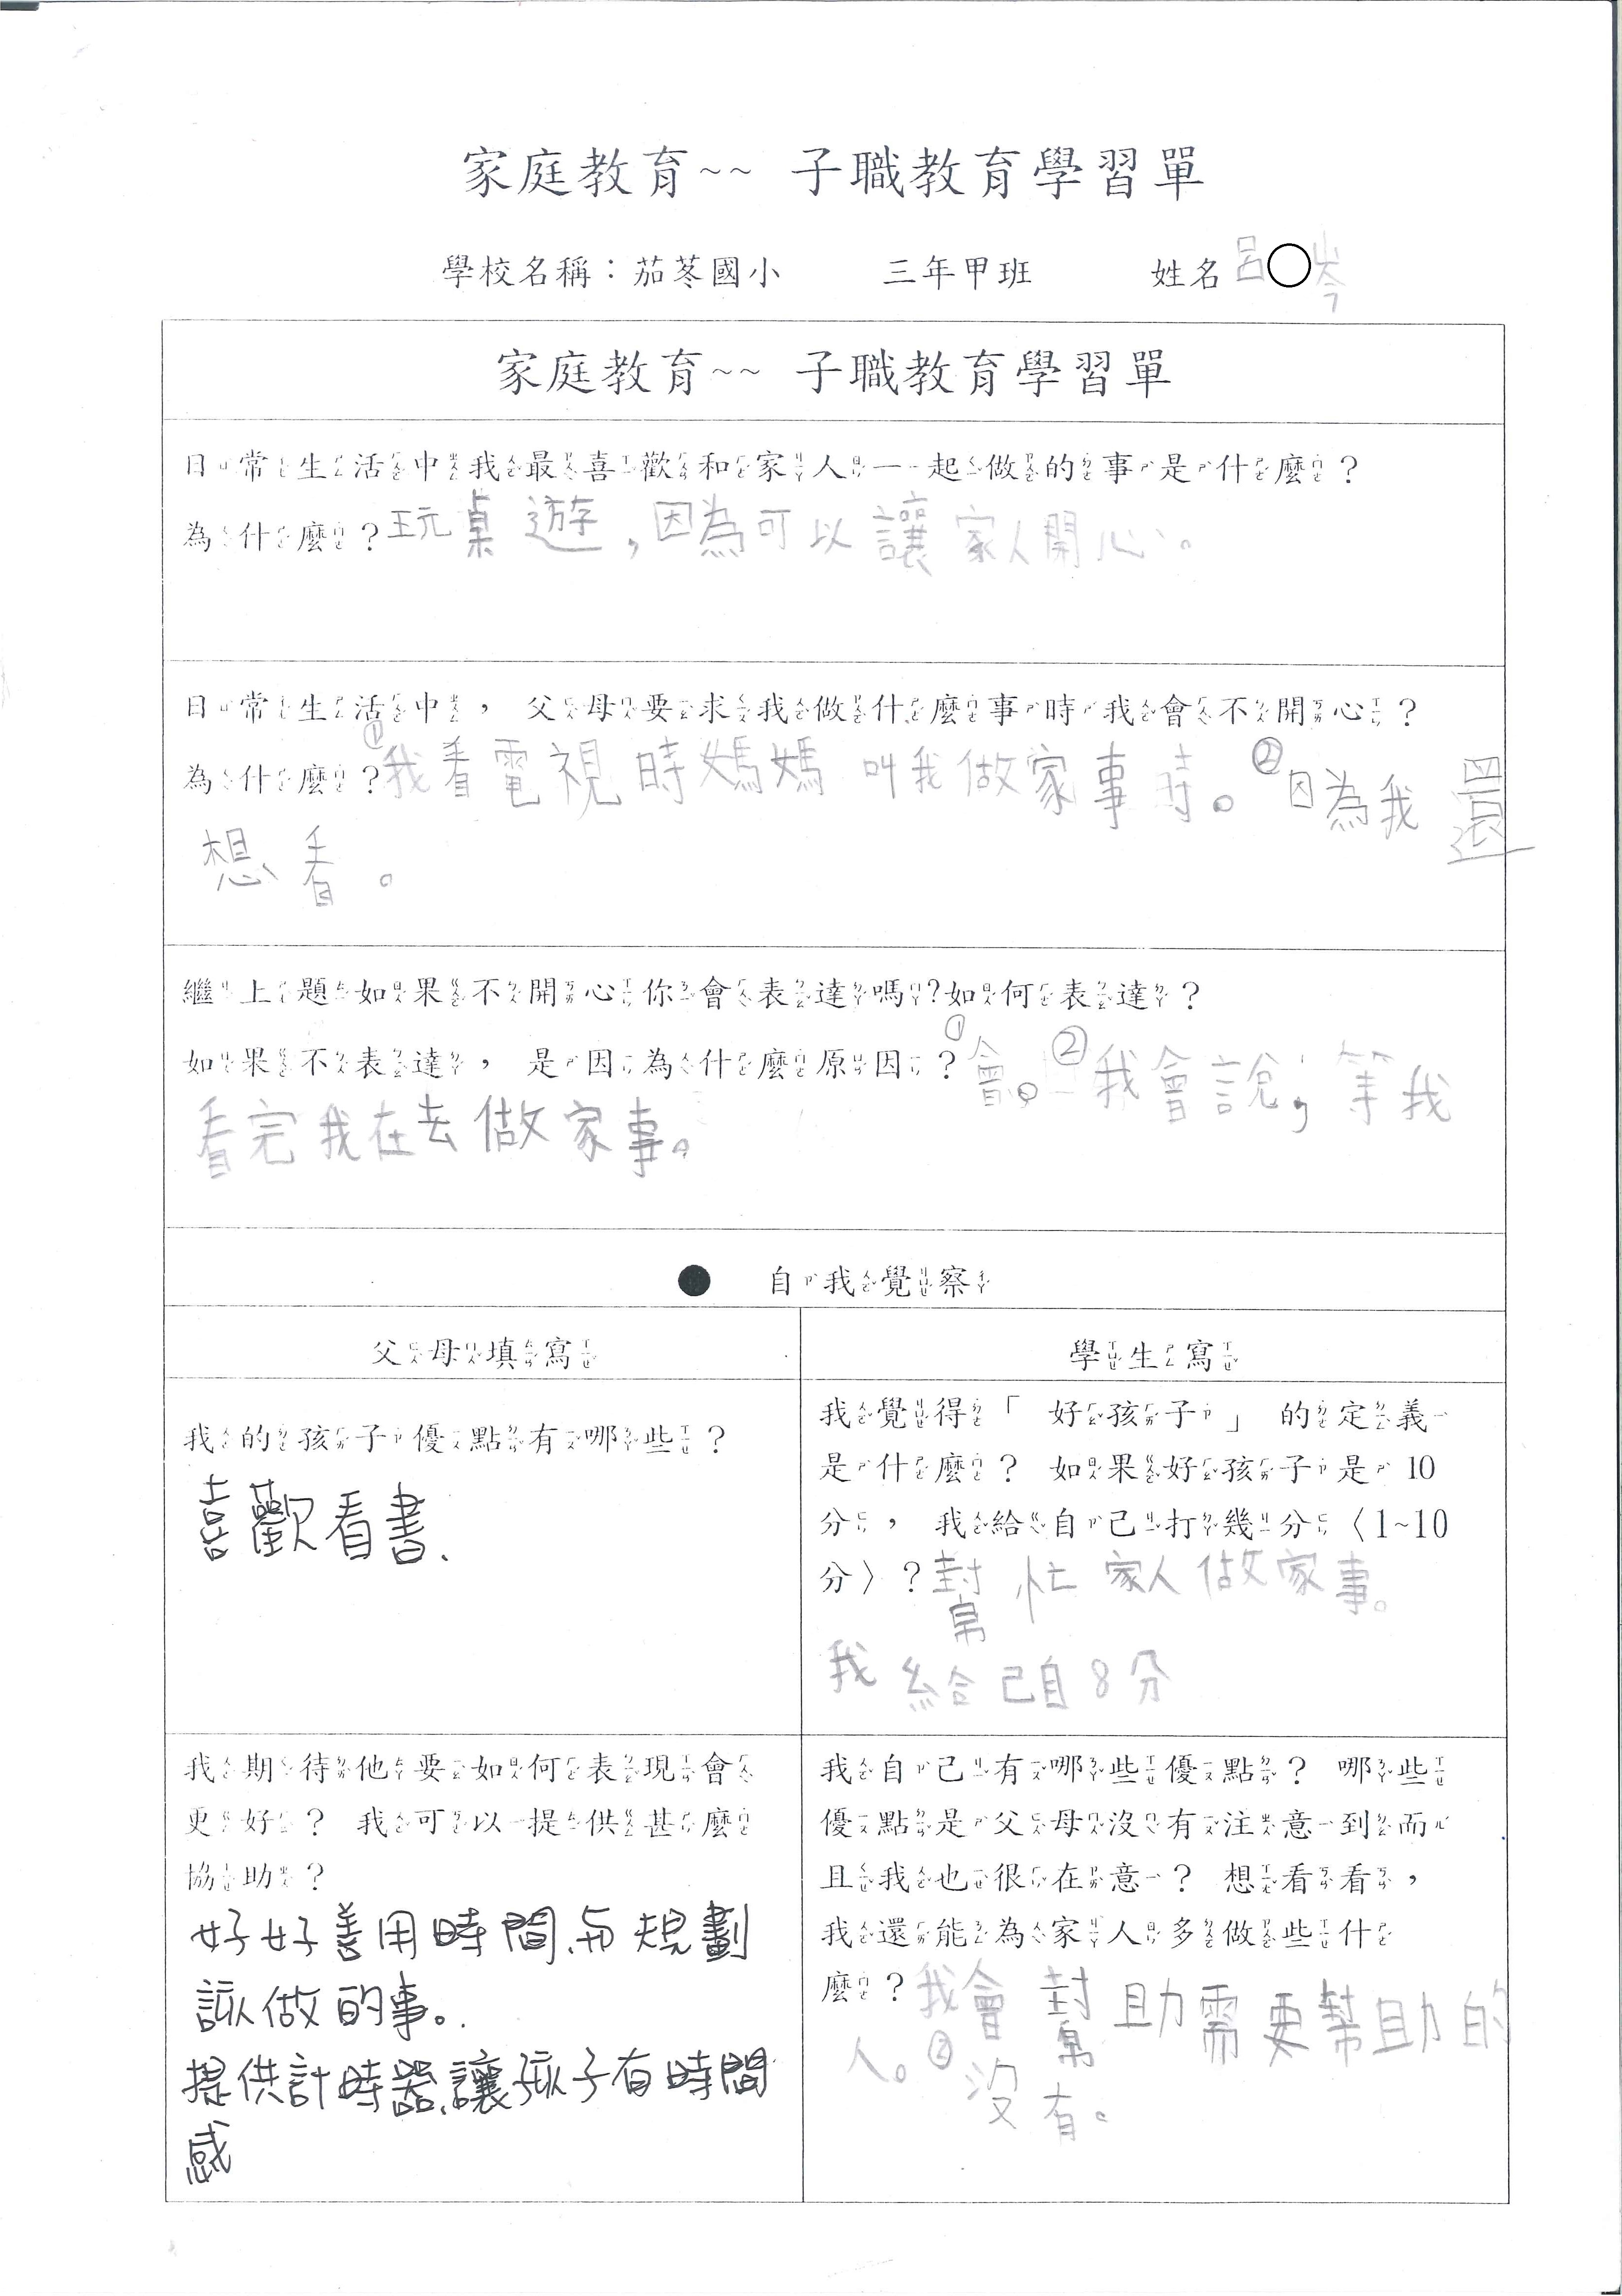 家庭教育~~ 子職教育學習單
學校名稱：茄苳國小 三年甲班 姓名呂○岑
家庭教育~~ 子職教育學習單
日常生活中我最喜歡和家人一起做的事是什麼？
為什麼？玩桌遊，因為可以讓家人開心。
日常生活中， 父母要求我做什麼事時我會不開心？
為什麼？①我看電視時媽媽叫我做家事時。②因為我還
想看。
繼上題如果不開心你會表達嗎?如何表達？
如果不表達， 是因為什麼原因？①會。②我會說，等我
看完我在去做家事。
● 自我覺察
父母填寫
學生寫
我的孩子優點有哪些？
喜歡看書、
我覺得「 好孩子」 的定義
是什麼？ 如果好孩子是 10
分， 我給自己打幾分〈1~10
分〉？幫忙家人做家事。
我給己自8分
我期待他要如何表現會
更好？ 我可以提供甚麼
協助？
好好善用時間、與規劃
該做的事。
提供計時器、讓孩子有時間
感
我自己有哪些優點？ 哪些
優點是父母沒有注意到而
且我也很在意？ 想看看，
我還能為家人多做些什
麼？我會幫助需要幫助的
人。②沒有。